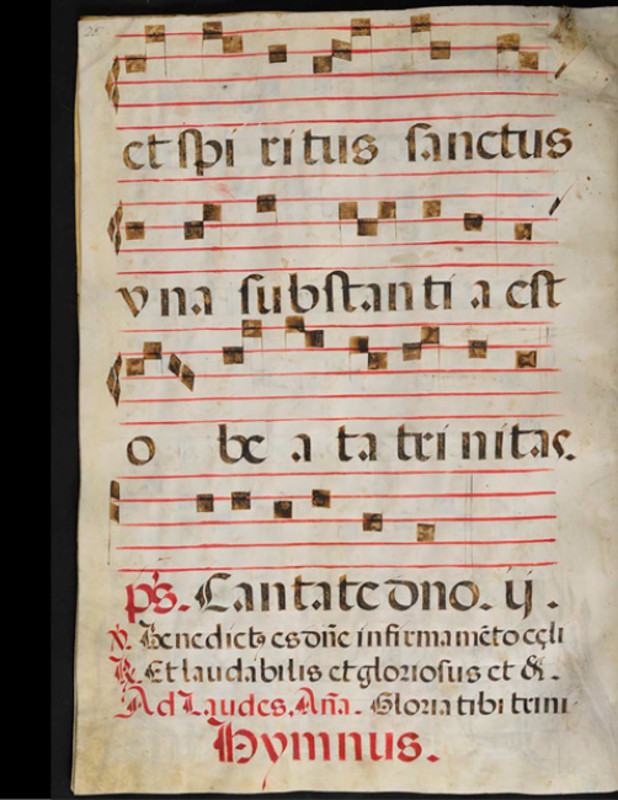 et spi ritus sanctus
vna substanti a est
o be a ta tri nitas.
ps. Cantate dno. ij.
℣. Benedictꝯ es dñe in firmamẽto cęli
℟. Et laudabilis et gloriosus et &.
Ad Laudes. Aña. Gloria tibi trini
Hymnus.